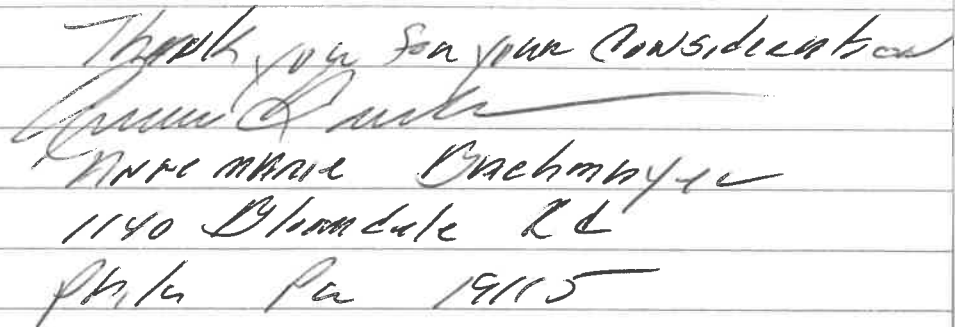 Thank you for your Consideration
Annemarie Bachmayer
1140 Bloomdale Rd
Phila Pa 19115